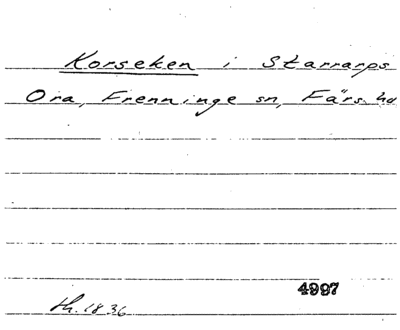 Korseken i Starrarps
Ora, Frenninge sn, Färs hd
4997
th. 1836